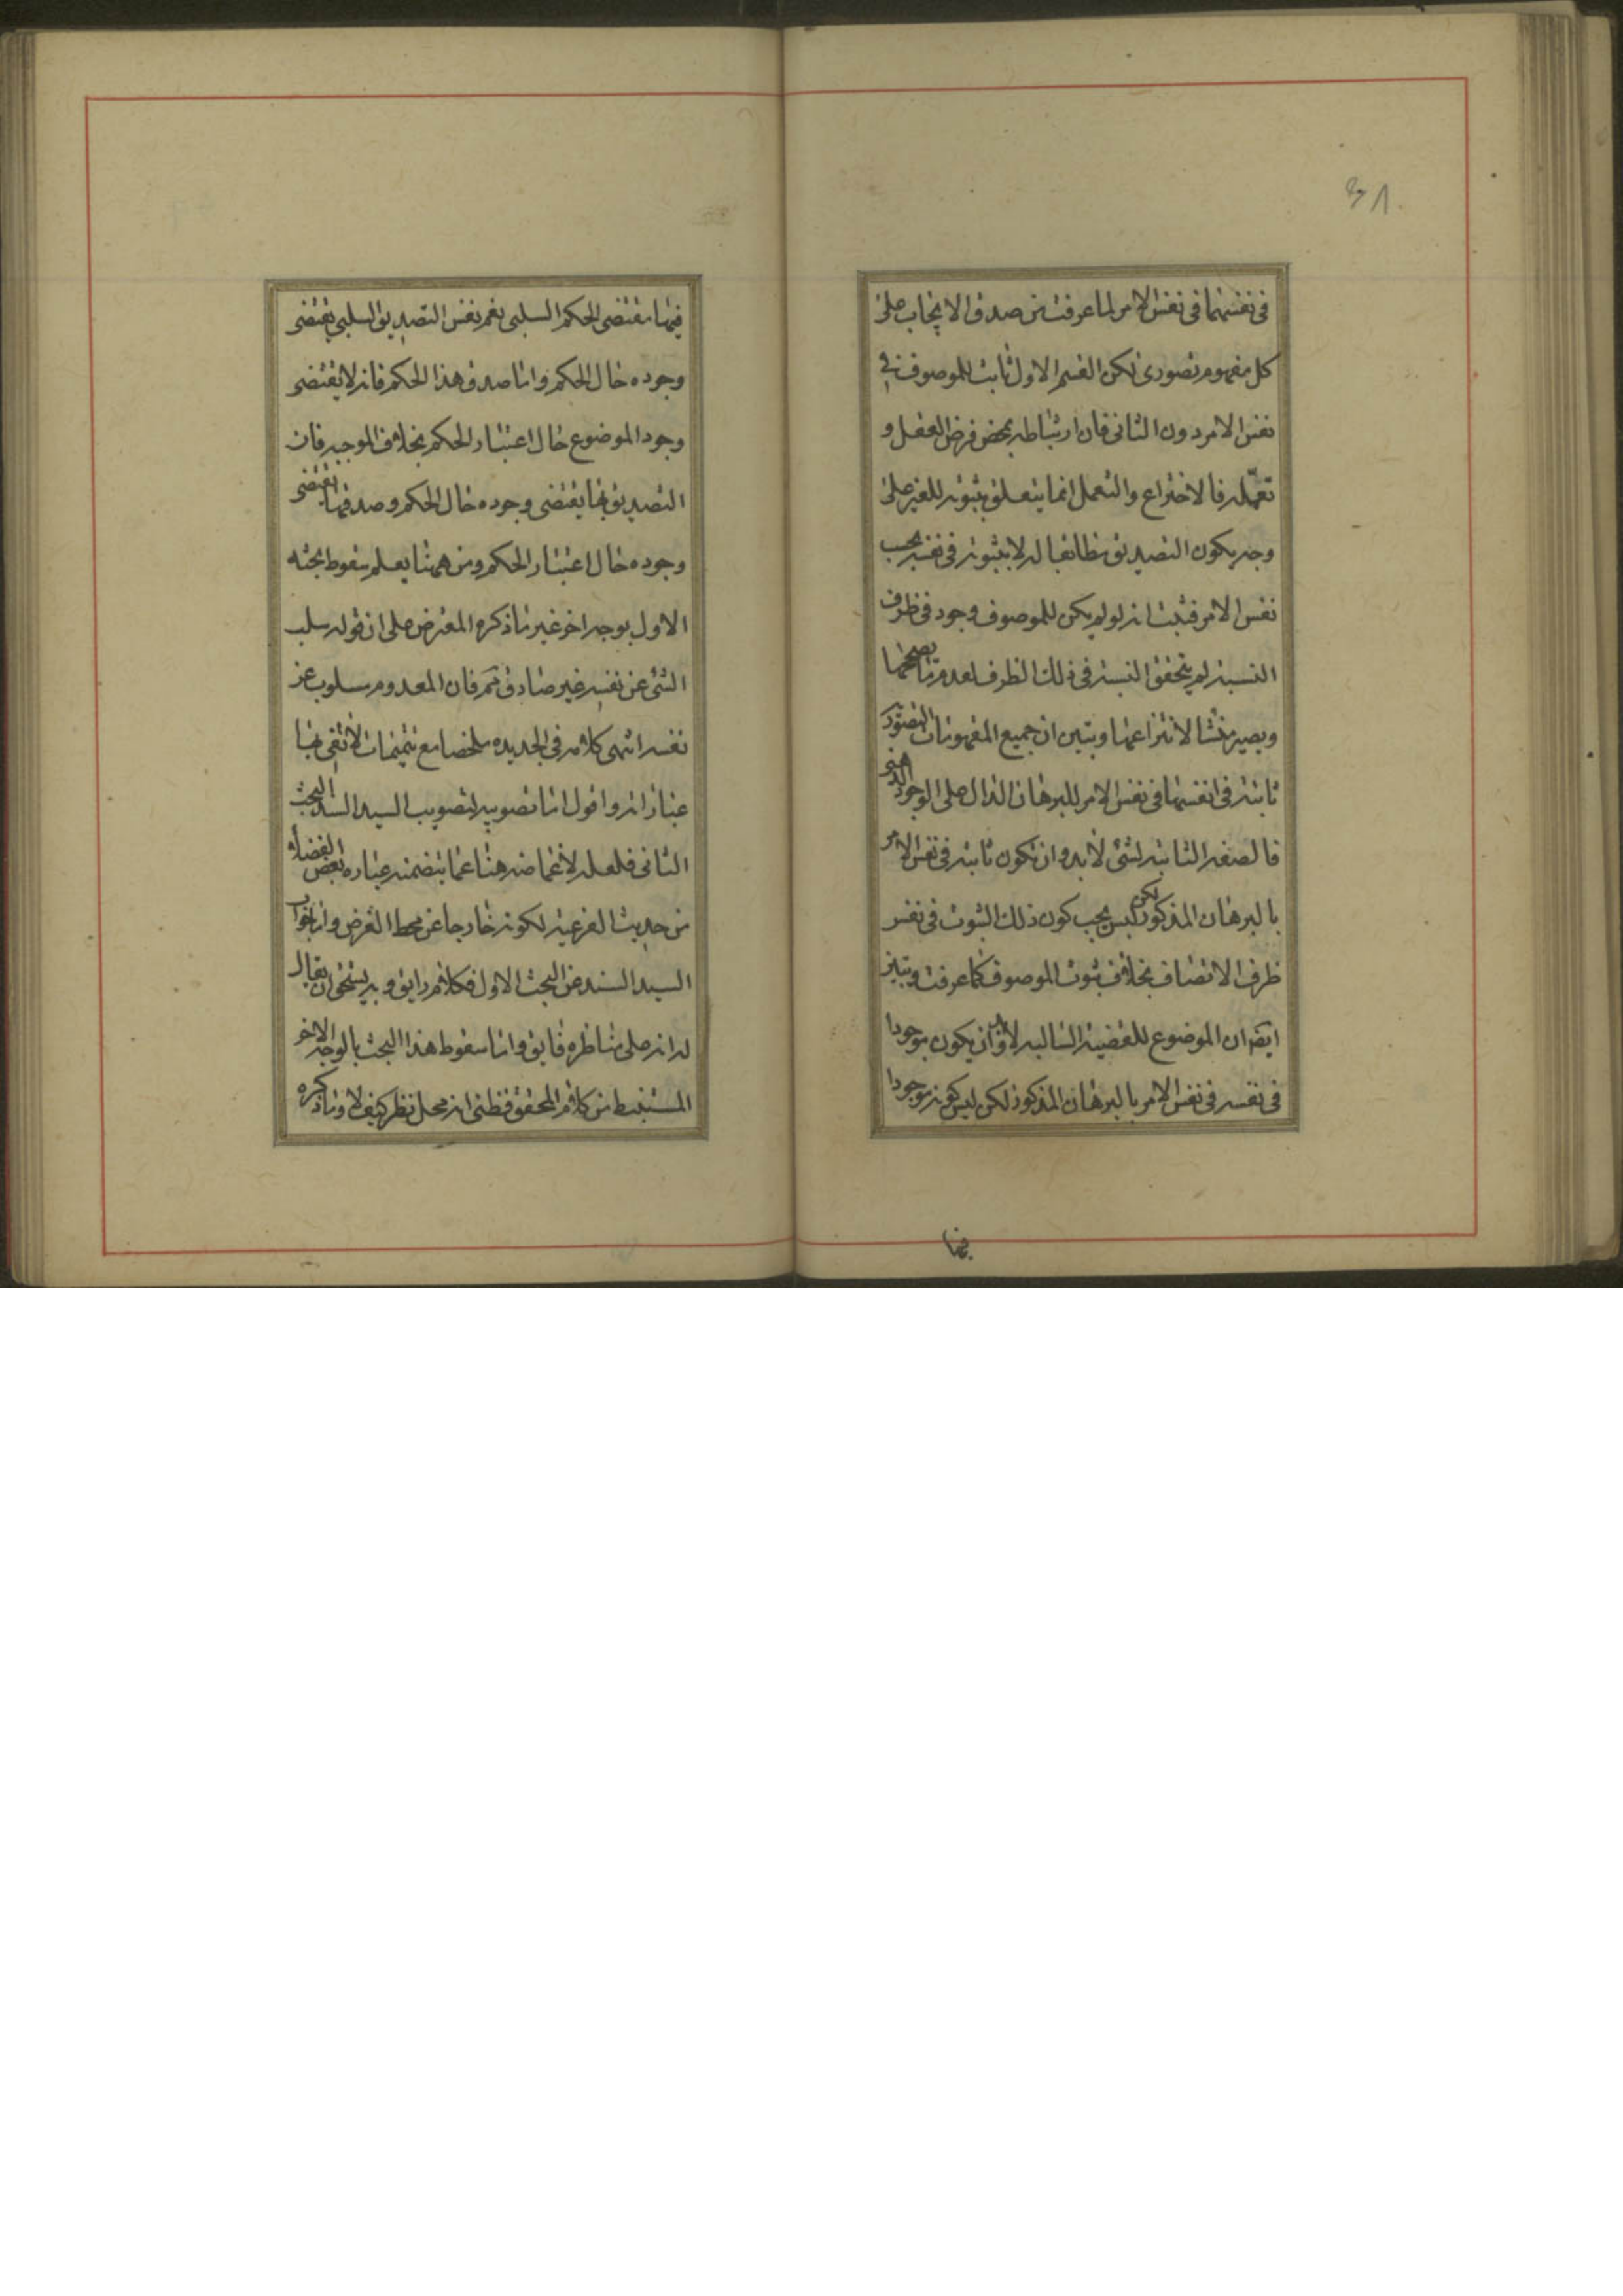 ٣٨
في نفسهما في نفس الامر لما عرفت من صدق الايجاب على
كل مفهوم تصوري لكن القسم الاول ثابت للموصوف في
نفس الامر دون الثاني فان ارتباطه بمحض فرض العقل و
تعمّله فالاختراع والتعمل انما يتعلق بثبوته للغير على
وجه يكون التصديق مطابقا له لا بثبوته في نفسه بحسب
نفس الامر فثبت انه لو لم يكن للموصوف وجود في ظرف
النسبة لم يتحقق النسبة في ذلك الظرف لعدم ما يصححها
ويصير منشا لانتزاعها وتبين ان جميع المفهومات التصور
ثابتة في انفسها في نفس الامر للبرهان الدال على الوجود الذهني
فالصفة الثابتة لشئ لابد وان تكون ثابتة في نفس الامر
بالبرهان المذكور لكن ليس يجب كون ذلك الثبوت في نفس
ظرف الاتصاف بخلاف ثبوت الموصوف كما عرفت وتبين
ايضا ان الموضوع للقضية السالبة لابد وان يكون موجودا
في نفسه في نفس الامر بالبرهان المذكور لكن ليس كونه موجودا
فيها مقتضى الحكم السلبي نعم نفس التصديق السلبي يقتضي
وجوده حال الحكم واما صدق هذا الحكم فانه لا يقتضي
وجود الموضوع حال اعتبار الحكم بخلاف الموجبة فان
التصديق بها يقتضي وجوده حال الحكم وصدقها يقتضي
وجوده حال اعتبار الحكم ومن ههنا يعلم سقوط بحثه
الاول بوجه اخر غير ما ذكره المعترض على ان قوله سلب
الشئ عن نفسه غير صادق ثم فان المعدوم مسلوب عن
نفسه انتهى كلامه في الجديدة ملخصا مع تتميمات لا تفي بها
عباراته واقول اما تصويبه لتصويب السيد السند البحث
الثاني فلعله لاغماضه هنا عما يتضمنه عبارة بعض الفضلاء
من حديث الفرعية لكونه خارجا عن محط الغرض واما جواب
السيد السند عن البحث الاول فكلام رايق و به يستحق ان يقال
له انه على مناظره فايق واما سقوط هذا البحث بالوجه الاخر
المستنبط من كلام المحقق فظني انه محل نظر كيف لا وما ذكره